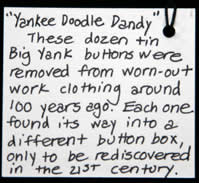 "Yankee Doodle Dandy"
These dozen tin
Big Yank buttons were
removed from worn-out
work clothing around
100 years ago. Each one
found its way into a
different button box,
only to be rediscovered
in the 21ST century.